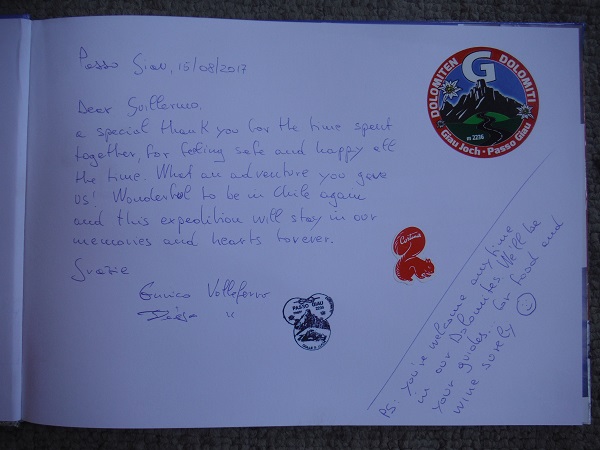 Passo Giau, 15/08/2017
Dear Guillermo,
a special thank you for the time spent
together, for feeling safe and happy all
the time. What an adventure you gave
us! Wonderful to be in Chile again
and this expedition will stay in our
memories and hearts forever.
Grazie
Enrico
"
DOLOMITEN G DOLOMITI
m 2236
Giau Joch - Passo Giau
Cortina
PASSO GIAU
PS: you're welcome any time
in our Dolomites. We'll be
your guides. For food and
wine surely ☺